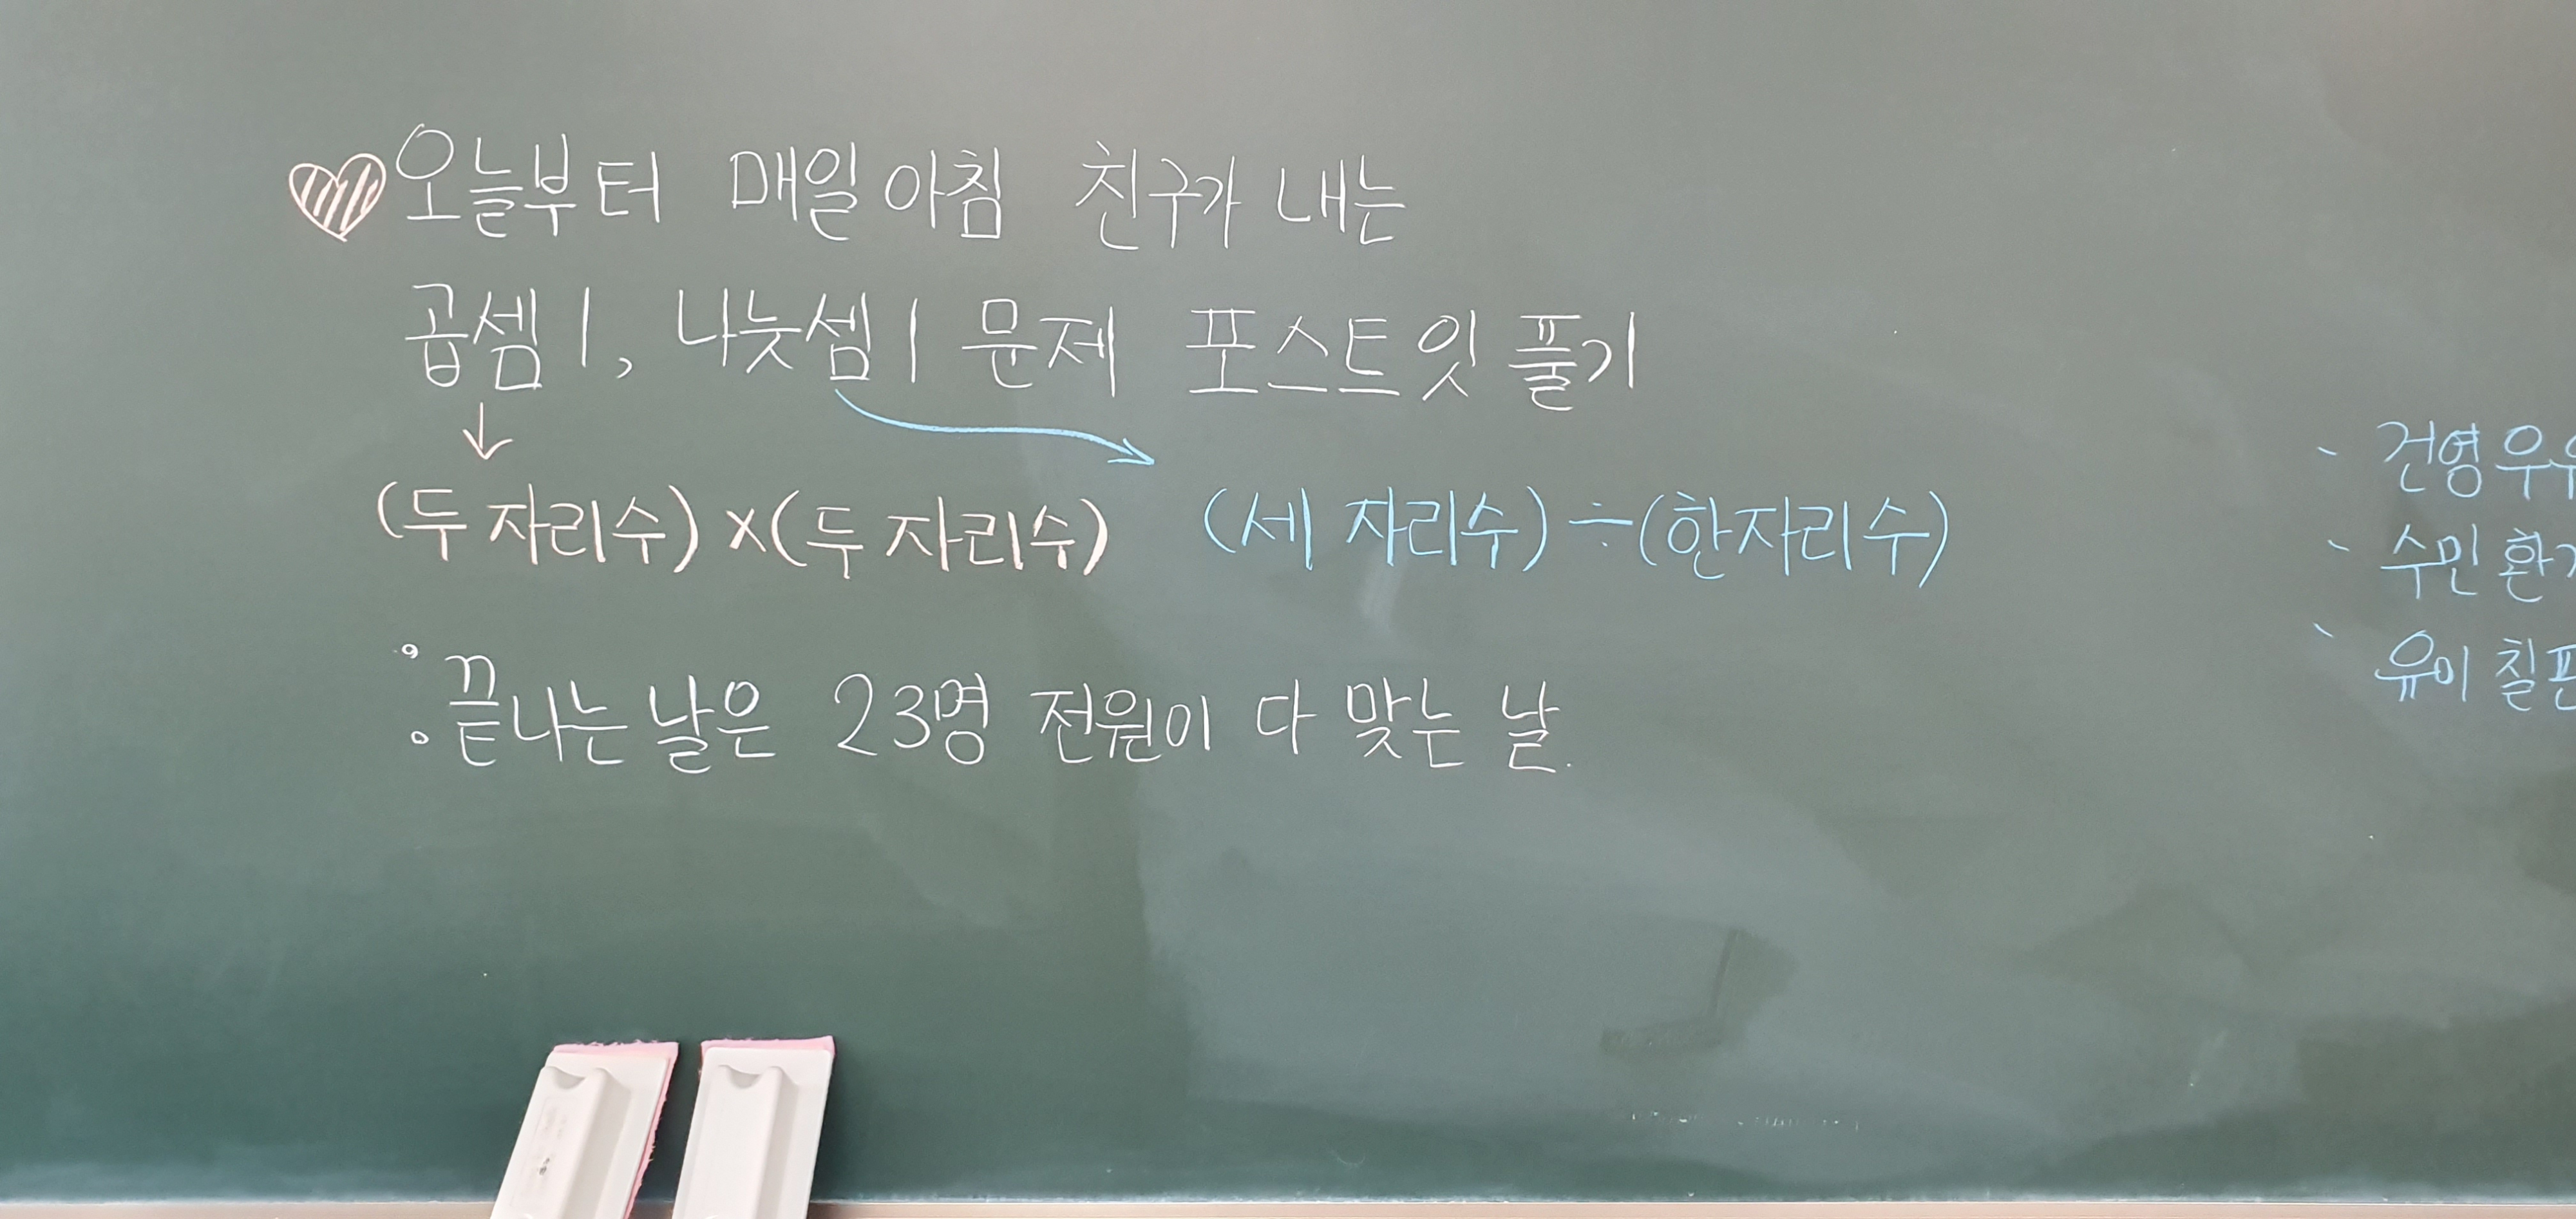 ♡오늘부터 매일 아침 친구가 내는
곱셈 1, 나눗셈 1 문제 포스트잇 풀기
↓
(두 자리수)×(두 자리수) (세 자리수)÷(한자리수)
끝나는 날은 23명 전원이 다 맞는 날.
- 건영
- 수민
- 유이